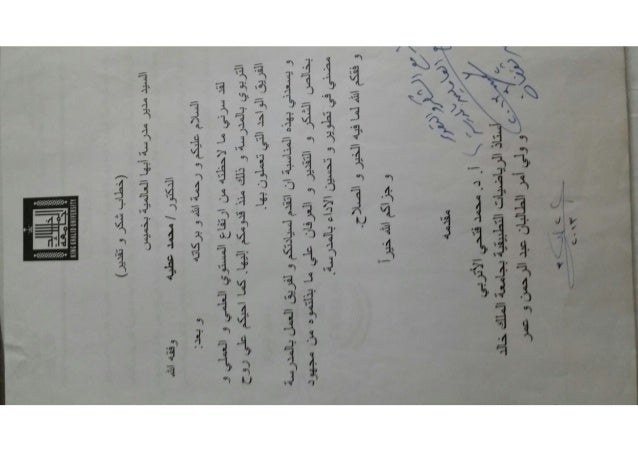 جامعة الملك خالد
KING KHALID UNIVERSITY
(خطاب شكر و تقدير)
السيد مدير مدرسة أبها العالمية بخميس
الدكتور / محمد عطيه وفقه الله
السلام عليكم و رحمة الله و بركاته
و بعد:
لقد سرني ما لاحظته من ارتفاع المستوي العلمي و العملي و
التربوي بالمدرسة و ذلك منذ قدومكم إليها. كما احيكم علي روح
الفريق الواحد التي تعملون بها.
و يسعدني بهذه المناسبة ان اتقدم لسيادتكم و لفريق العمل بالمدرسة
بخالص الشكر و التقدير و العرفان علي ما بذلتموه من مجهود
مضني في تطوير و تحسين الاداء بالمدرسة.
و وفقكم الله لما فيه الخير و الصلاح.
و جزاكم الله خيراً
مقدمه
أ. د. محمد فتحي الأتربي
أستاذ الرياضيات التطبيقية بجامعة الملك خالد
و ولي أمر الطالبان عبد الرحمن و عمر
٢٠١٣